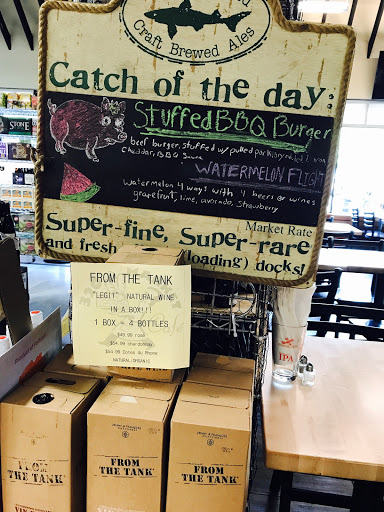 Craft Brewed Ales
Catch of the day:
Stuffed BBQ Burger
beef burger, stuffed w/ pulled pork, onion
Cheddar, BBQ Sauce
WATERMELON FLIGHT
Watermelon 4 ways with 4 beers or wines
grapefruit, lime, avocado, strawberry
Market Rate
Super-fine, Super-rare
and fresh (loading) docks!
FROM THE TANK
"LEGIT" NATURAL WINE
IN A BOX!!!
BOX = 4 BOTTLES
$49.99 rose
$54.99 chardonnay
$44.99 Cotes du Rhone
NATURAL-ORGANIC
FROM
THE TANK
FROM
THE TANK
FROM
THE TANK
IPA
STONE